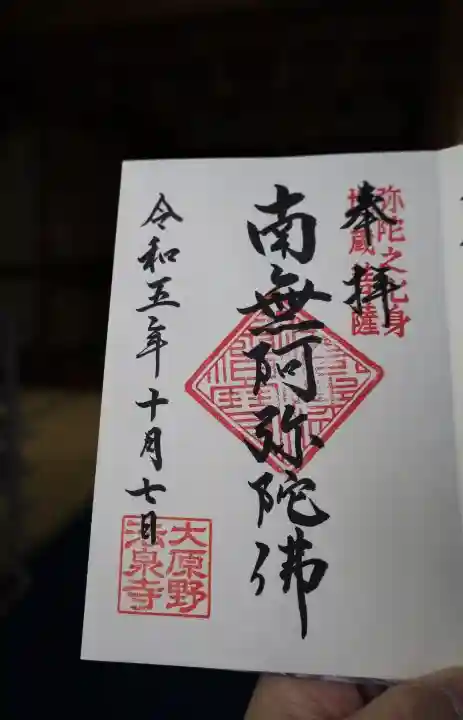 奉拝
弥陀之化身
地蔵菩薩
南無阿弥陀佛
令和五年十月七日
大原野
法泉寺